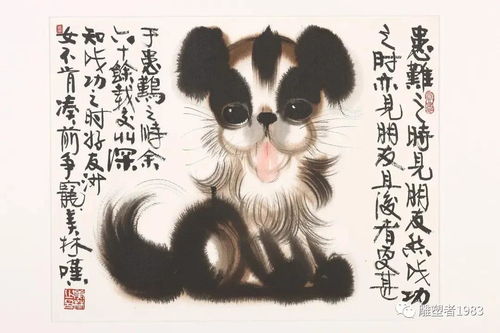 患難之時見朋友然成功
之時亦見朋友且後者更甚
于患難之時余
六十餘載深
知成功之時好友
女不肯凑前爭寵美林
雕塑者1983